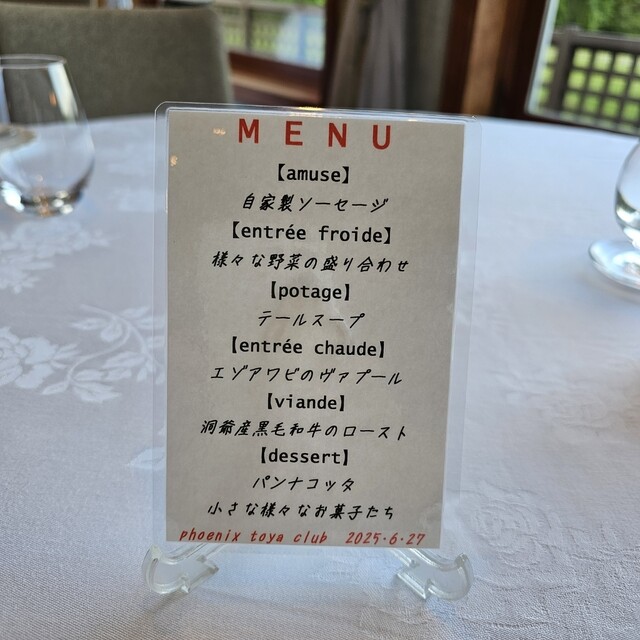 MENU
【amuse】
自家製ソーセージ
【entrée froide】
様々な野菜の盛り合わせ
【potage】
テールスープ
【entrée chaude】
エゾアワビのヴァプール
【viande】
洞爺産黒毛和牛のロースト
【dessert】
パンナコッタ
小さな様々なお菓子たち
phoenix toya club 2025.6.27